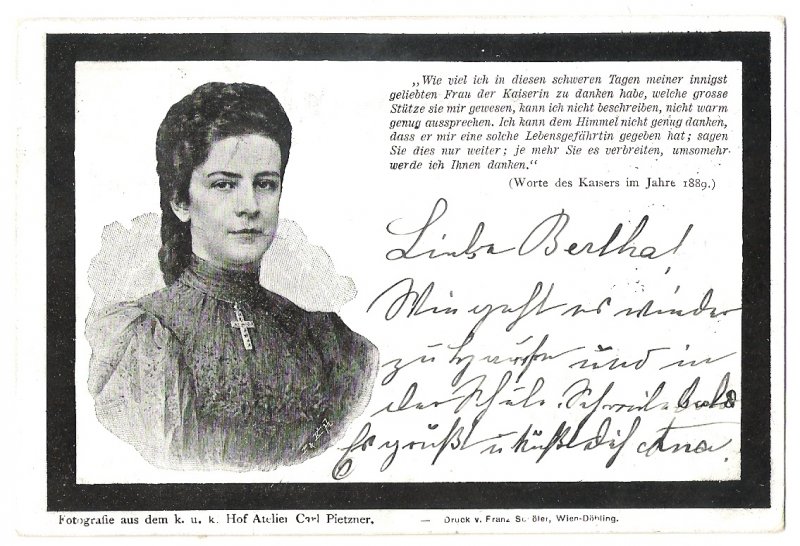 „Wie viel ich in diesen schweren Tagen meiner innigst
geliebten Frau der Kaiserin zu danken habe, welche grosse
Stütze sie mir gewesen, kann ich nicht beschreiben, nicht warm
genug aussprechen. Ich kann dem Himmel nicht genug danken,
dass er mir eine solche Lebensgefährtin gegeben hat; sagen
Sie dies nur weiter; je mehr Sie es verbreiten, umsomehr
werde ich Ihnen danken.“
(Worte des Kaisers im Jahre 1889.)
Liebe Bertha!
Wie geht es wieder
zu Hause und in
der Schule. Schreibe bald
Es grüßt u küßt dich Anna.
Fotografie aus dem k. u. k. Hof Atelier Carl Pietzner.
— Druck v. Franz Schöler, Wien-Döbling.